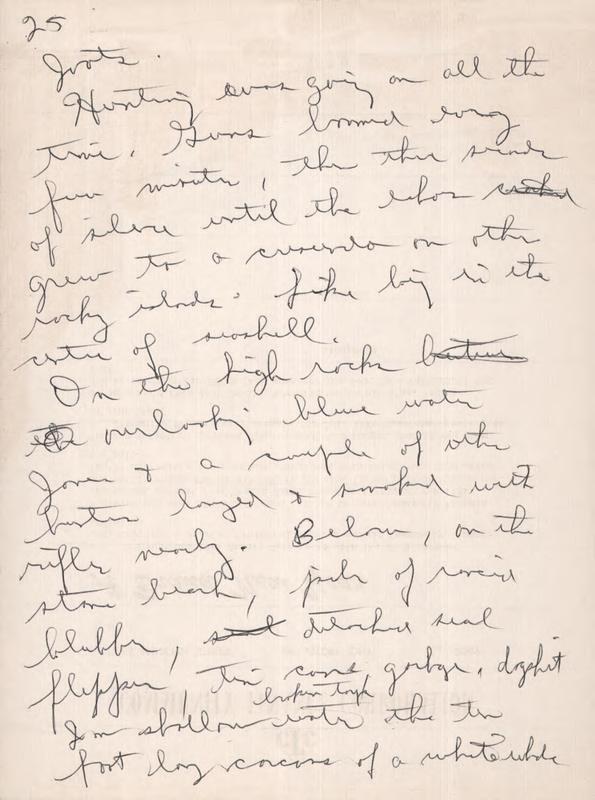 25
foots.
Hunting was going on all the
time. Guns boomed every
few minutes, the three seconds
of silence until the echos
grew to a crescendo on other
rocky islands. Like being in the
centre of seashell.
On the high rocks
overlooking blue water
Jonee & a couple of other
hunters lounged & smoked with
rifles nearby. Below, on the
stone beach, piles of rancid
blubber, detached seal
flippers, tin cans garbage, dogshit
broken toys
In shallow water the ten
foot long carcass of a white whale